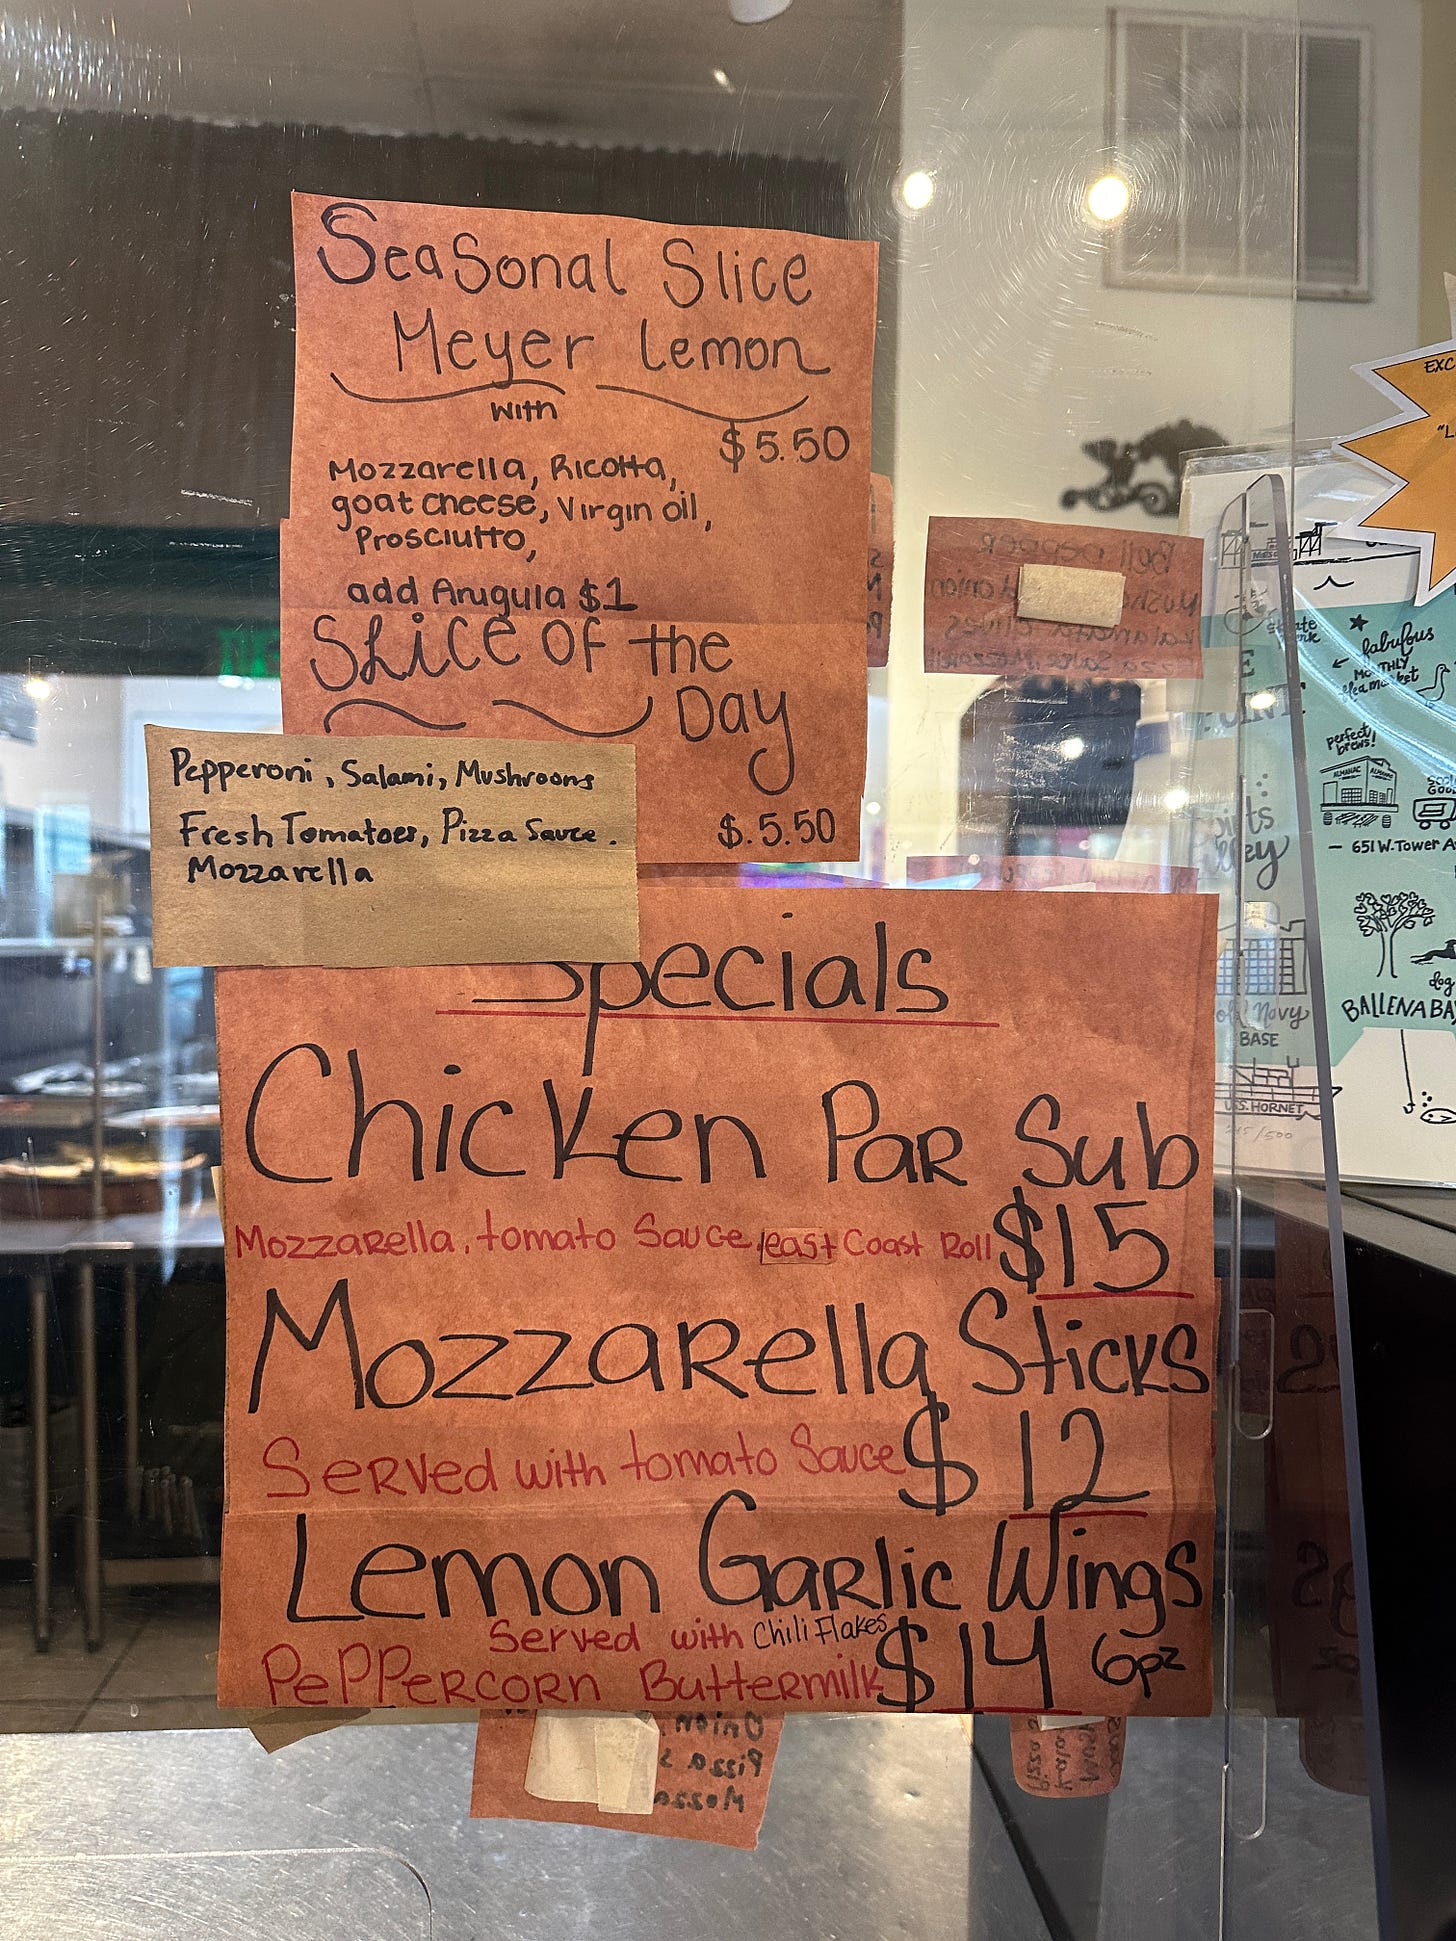 Seasonal Slice
Meyer Lemon
with
$5.50
Mozzarella, Ricotta,
goat cheese, Virgin oil,
Prosciutto,
add Arugula $1
Slice of the
Day
$.5.50
Pepperoni, Salami, Mushrooms
Fresh Tomatoes, Pizza Sauce.
Mozzarella
Specials
Chicken Par Sub
Mozzarella, tomato Sauce, east Coast Roll $15
Mozzarella Sticks
Served with tomato Sauce $12
Lemon Garlic Wings
Served with Chili Flakes
Peppercorn Buttermilk $14 6pz
Bell pepper
Onion.
Pizza s
Mozza
EXC
"L
fabulous
MONTHLY
flea market
perfect
brews!
ALMANAC
ALMANAC
651 W. Tower A
dog
BALLENA BA
Navy
BASE
U.S. HORNET